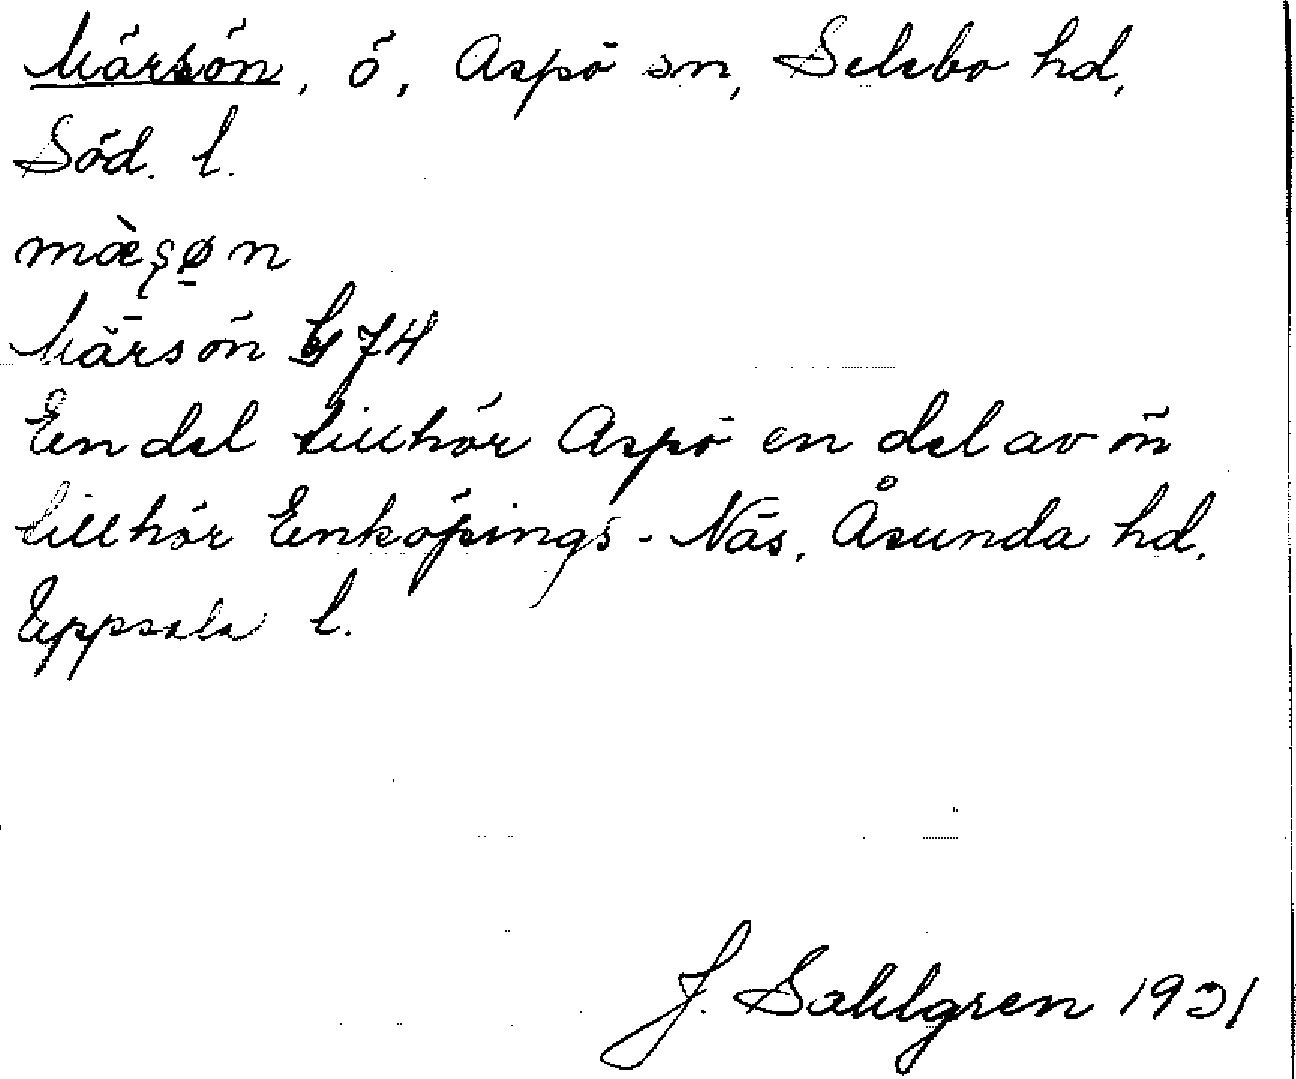 Märsön, ö, Aspö sn, Selebo hd,
Söd. l.
mæ̀ʂø̱n
Märsön G 74
En del tillhör Aspö en del av ön
tillhör Enköpings-Näs, Åsunda hd.
Uppsala l.
J. Sahlgren 1921